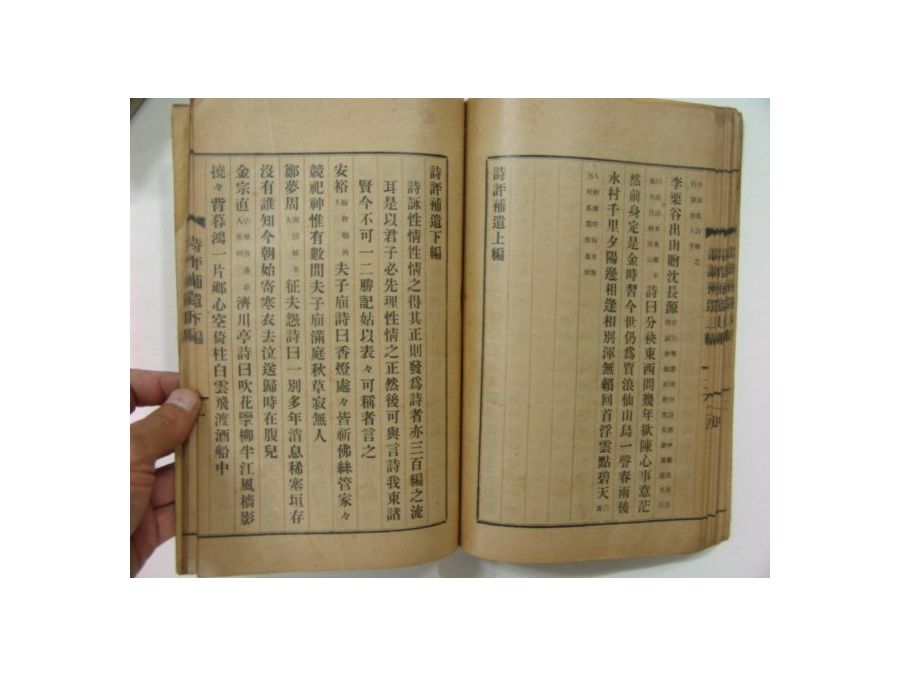 李栗谷出山贈沈長源
詩曰分袂東西問幾年欲陳心事意茫
然前身定是金時習今世仍爲賈浪仙山鳥一聲春雨後
水村千里夕陽邊相逢相別渾無賴回首浮雲點碧天
詩評補遺上編
詩評補遺下編
詩詠性情性情之得其正則發爲詩者亦三百編之流
耳是以君子必先理性情之正然後可與言詩我東諸
賢今不可一二勝記姑以表々可稱者言之
安裕 夫子廟詩曰香燈處々皆祈佛絲管家々
競祀神惟有數間夫子廟滿庭秋草寂無人
鄭夢周 征夫怨詩曰一別多年消息稀寒垣存
沒有誰知今朝始寄寒衣去泣送歸時在腹兒
金宗直 濟川亭詩曰吹花擘柳半江風檣影
撓々背暮鴻一片鄉心空倚柱白雲飛渡酒船中
詩評補遺下編